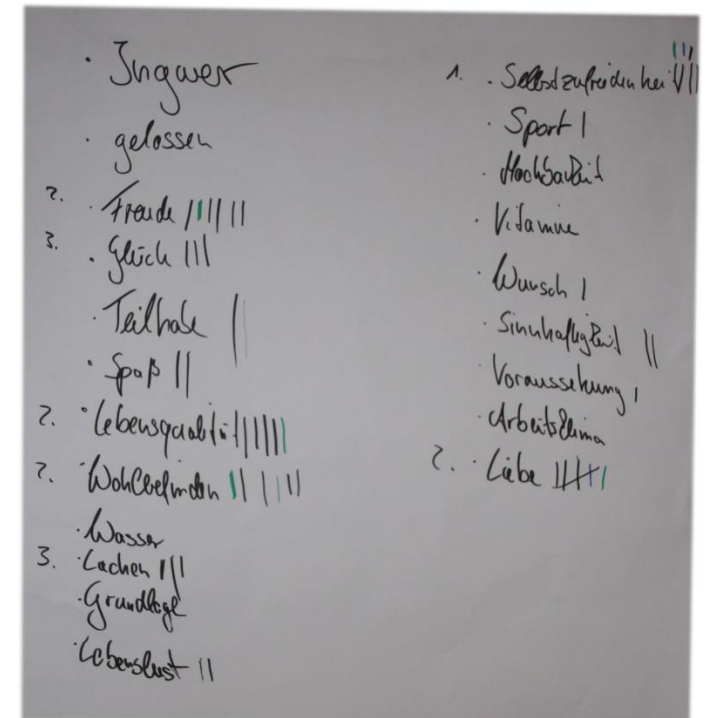 · Ingwer
· gelassen
2. · Freude ||||| ||
3. · Glück |||
· Teilhabe ||
· Spaß ||
2. · Lebensqualität ||||||
2. · Wohlbefinden || ||||
· Wasser
3. · Lachen |||
· Grundlage
· Lebenslust ||
1. · Selbstzufriedenheit
· Sport |
· Machbarkeit
· Vitamine
· Wunsch |
· Sinnhaftigkeit ||
· Voraussetzung |
· Arbeitsklima
2. · Liebe